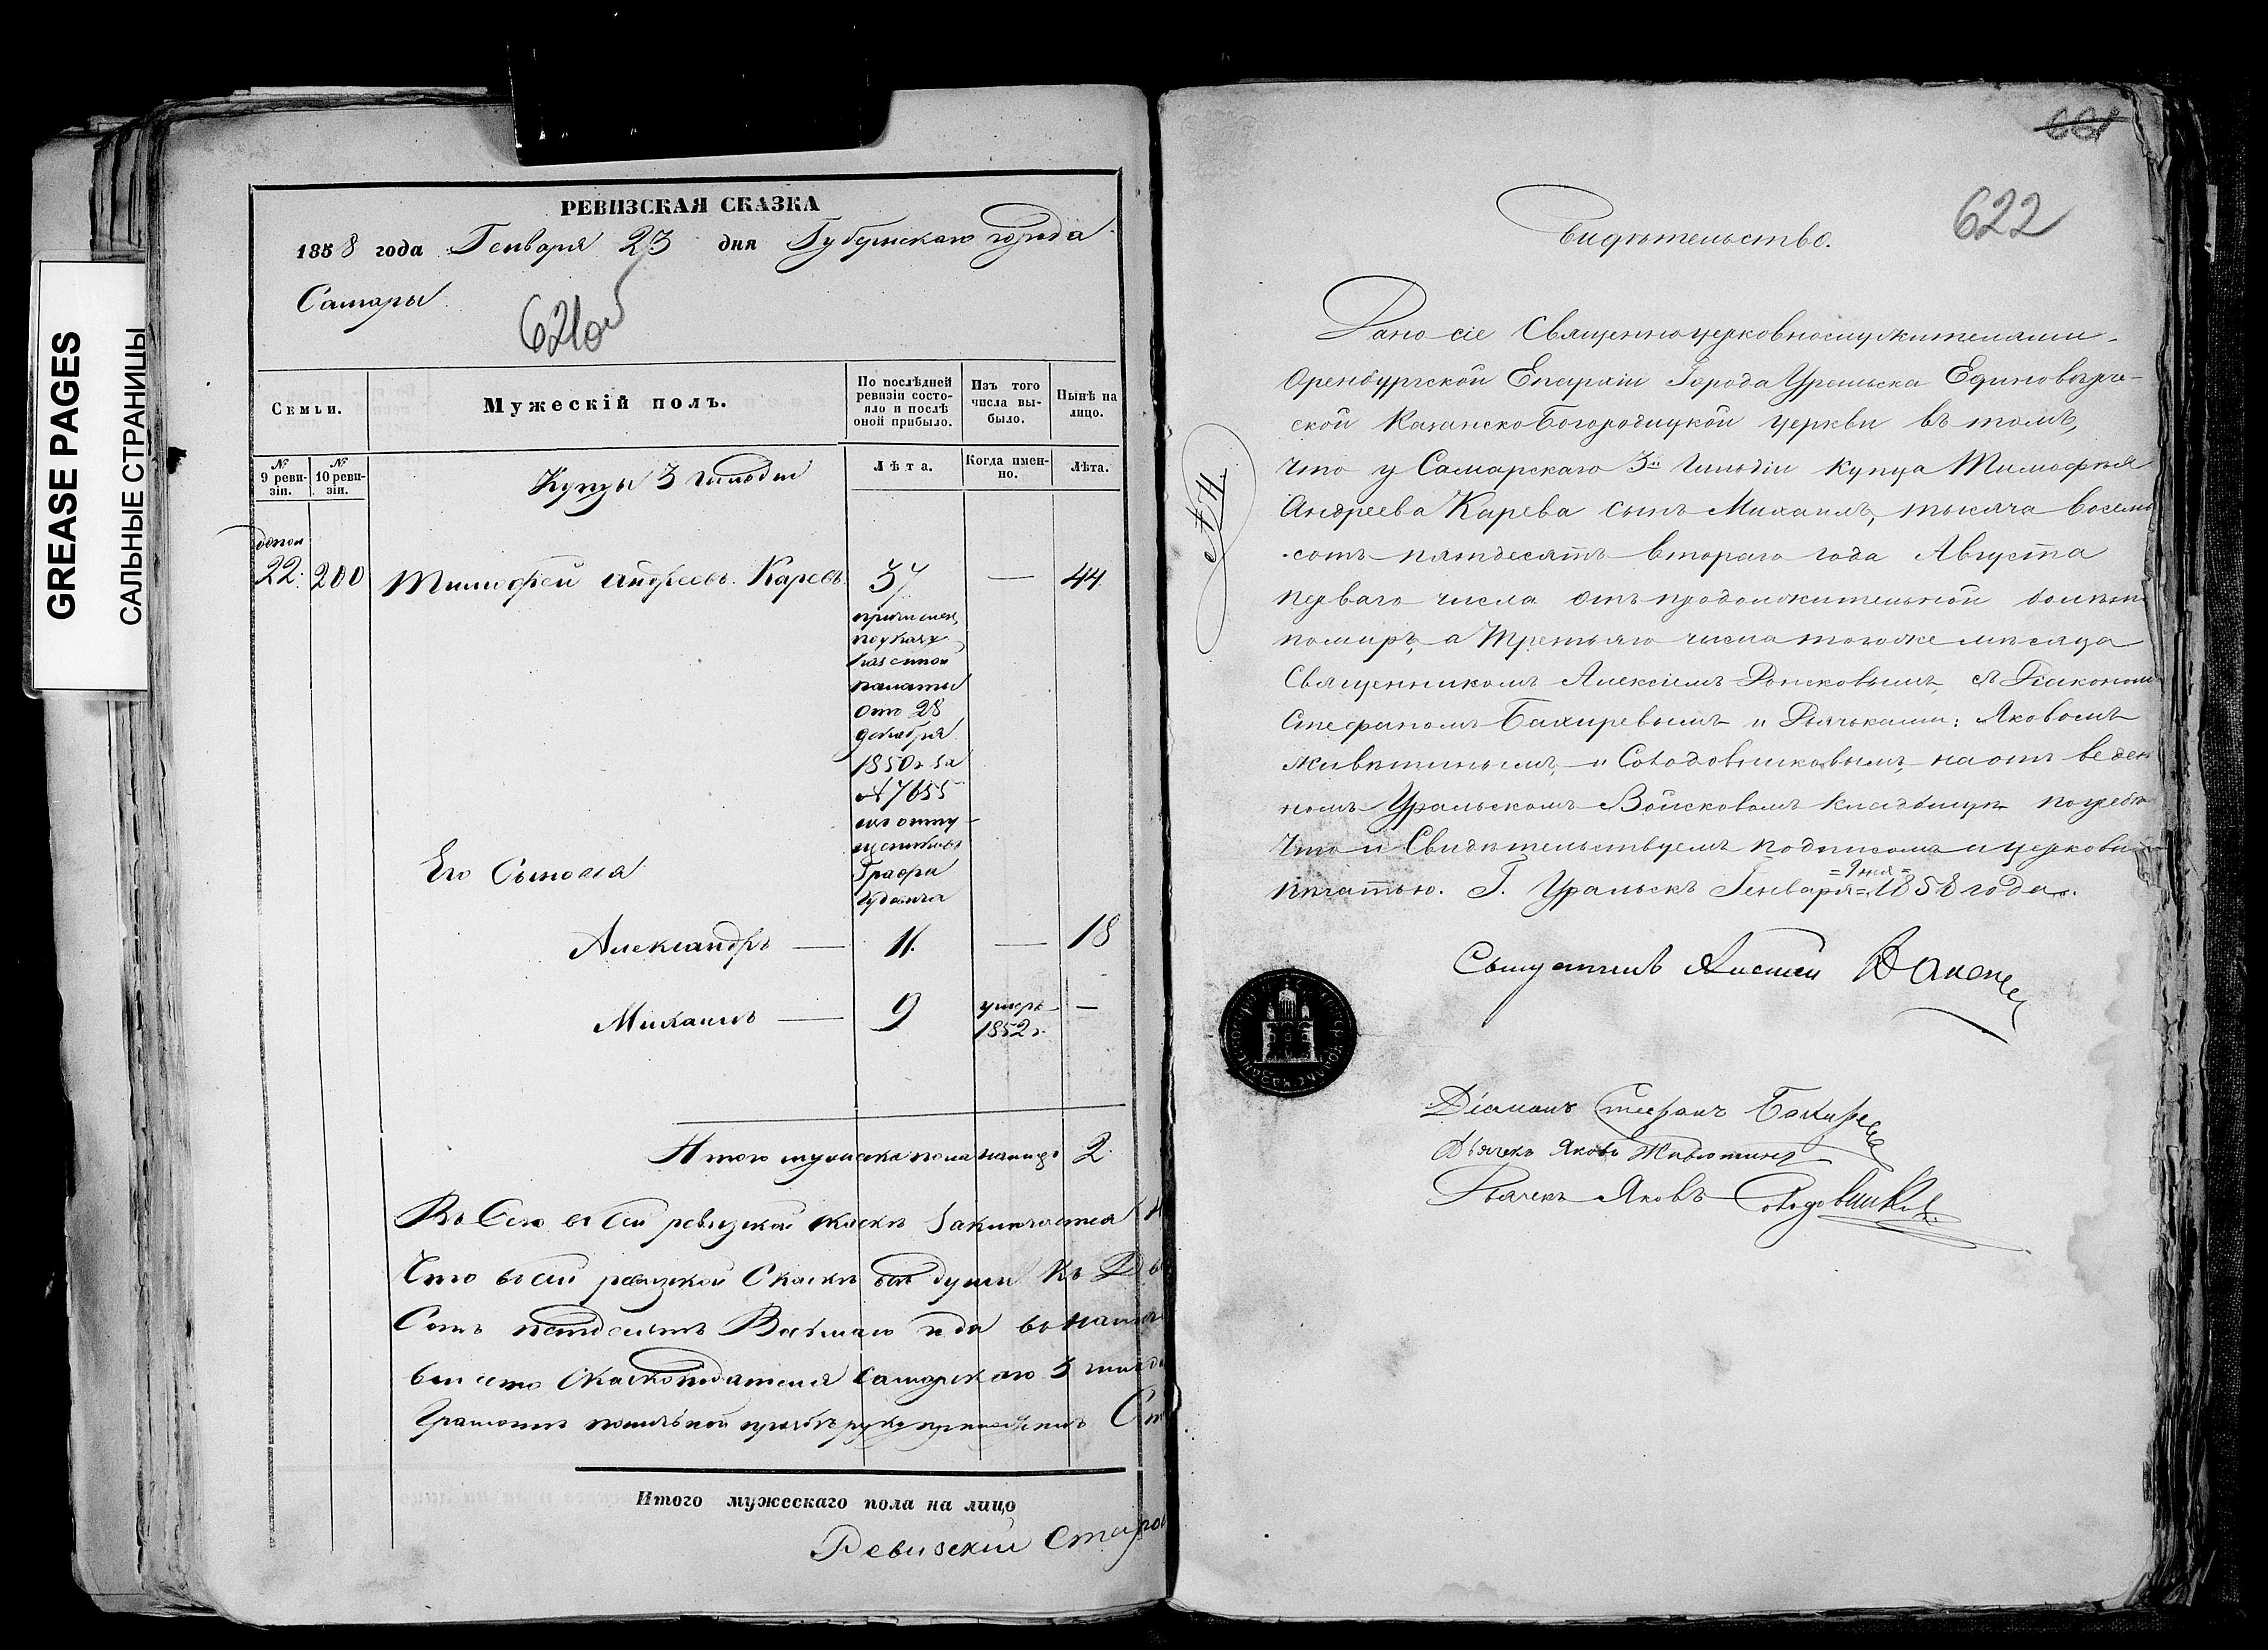 GREASE PAGES
САЛЬНЫЕ СТРАНИЦЫ
РЕВИЗСКАЯ СКАЗКА
1858 года Генваря 23 дня Губернскаго города
Самары
621об
Семьи.
Мужескій полъ.
По послѣдней ревизіи состояло и послѣ оной прибыло.
Изъ того числа выбыло.
Нынѣ на лицо.
№ 9 ревизіи.
№ 10 ревизіи.
Купцы 3 гильдіи
Лѣта.
Когда именно.
Лѣта.
допол
22. 200 Тимофей Андреевъ Каревъ 37 — 44
причислен
по указу
казенной
палаты
отъ 28
декабря
1850 г. за
№ 7655
изъ отпу-
щенниковъ
Графа
Гудовича
Его Сыновья
Александръ — 11. — 18
Михаилъ — 9 умеръ 1852 г. —
Итого мужеска пола налицо 2
Въ сей ревизкой скаскѣ
Что въ сей ревизкой Скаскѣ всѣ души
Сотъ пятдесятъ года
вмѣсто Самарскаго 3
Итого мужескаго пола на лицо
Ревизскій Старо
661
622
Свидѣтельство.
№ 4.
Дано сіе Священноцерковнослужителями
Оренбургской Епархіи Города Уральска Единовѣрче-
ской Казанско Богородицкой церкви въ томъ,
Что у Самарскаго 3й Гильдіи купца Тимофея
Андреева Карева сынъ Михаилъ, тысяча восемь
сотъ пятдесятъ втораго года Августа
перваго числа отъ продолжительной болѣзни
померъ, а Третьяго числа тогоже мѣсяца
Священникомъ Алексіемъ съ Діакономъ
Стефаномъ Бахиревымъ и Дьячьками: Яковомъ
Живѣтинымъ, и Солодовниковымъ, на отведен
номъ Уральскомъ Войсковомъ кладбищѣ погребе
Что и Свидѣтельствуемъ подписомъ и церковн
печатью. Г. Уральскъ Генваря = 9 дня = 1858 года.
Священникъ Алексей
Діаконъ Стефанъ Бахирев
Дьячекъ Яковъ Живѣтинъ
Дьячекъ Яковъ Солодовников